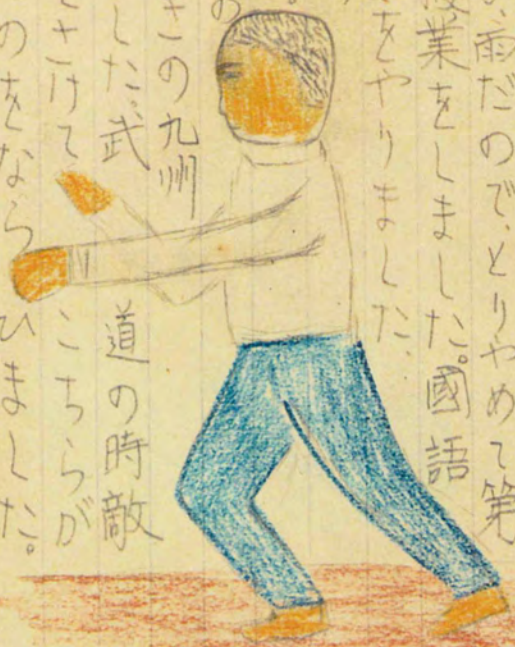 雨だので、とりやめて第
業をしました。國語
をやりました.
の
さの九州
した。武道の時敵
さけてこちらが
のをならひました。